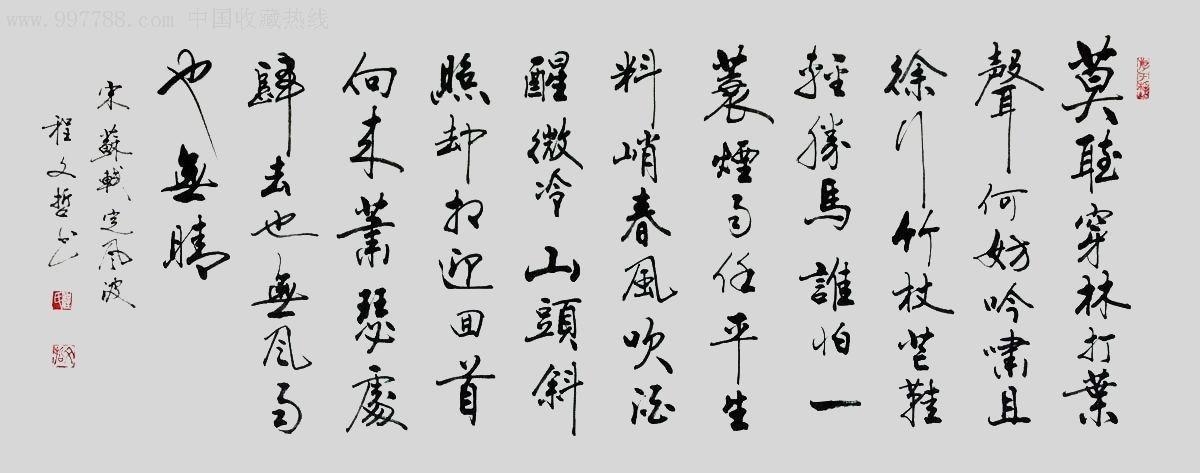 www.997788.com 中国收藏热线
莫聽穿林打葉
聲何妨吟嘯且
徐行竹杖芒鞋
輕勝馬誰怕一
蓑煙雨任平生
料峭春風吹酒
醒微冷山頭斜
照却相迎回首
向来蕭瑟處
歸去也無風雨
也無晴
宋蘇軾定風波
程文哲书